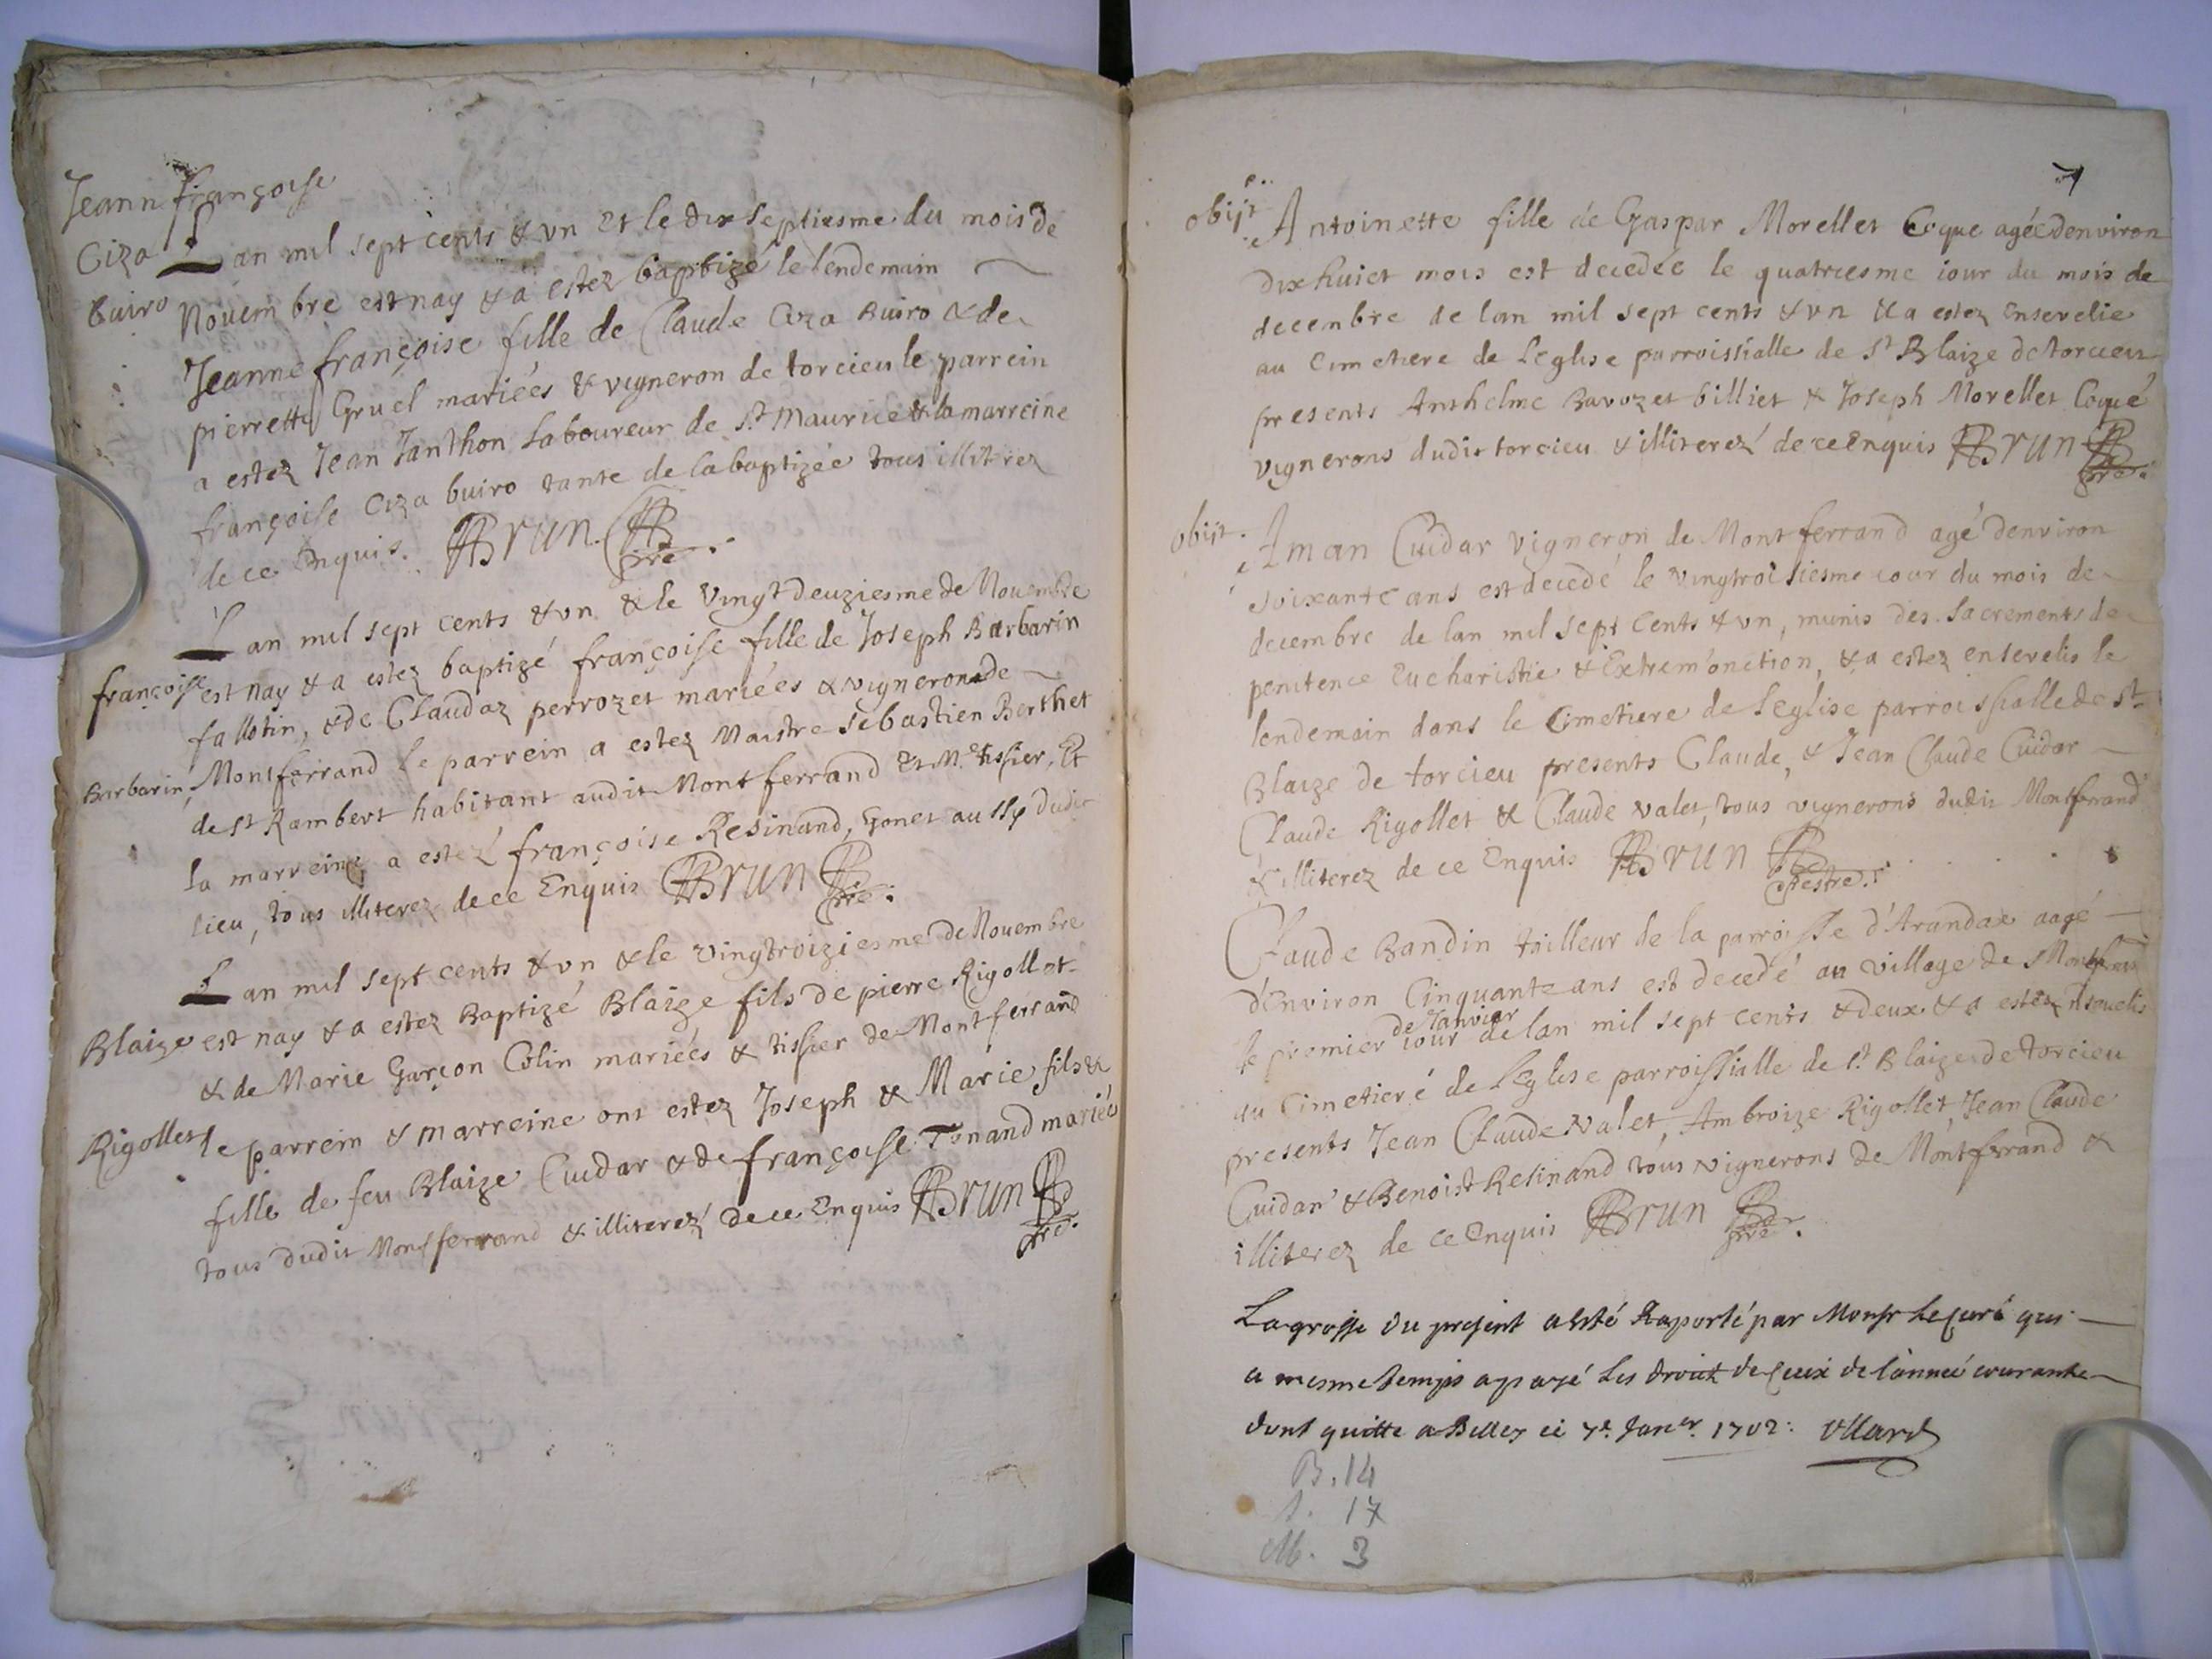 Jeanne françoise
Ciza
buiro
Lan mil sept cents & vn Et le dix septiesme du mois de
Novembre est nay & a estez baptizé le lendemain
Jeanne françoise fille de Claude Ciza Buiro & de
pierrette Gruel mariées & vigneron de torcieu le parrein
a estez Jean Janthon Laboureur de St Maurice & la marreine
françoise Ciza buiro tante de la baptizée tous illiterez
de ce Enquis. Brun pre.
Lan mil sept cents & vn & le Vingt deuziesme de Nouembre
françoise
est nay & a estez baptizé françoise fille de Joseph Barbarin
fallotin, & de Claudaz perrozet mariées & vigneron de
Barbarin
Montferrand le parrein a estez Maistre Sebastien Berthet
de St Rambert habitant audit Montferrand Et Me tissier, Et
la marreine a estez françoise Resinand, Gonet aussy dudit
lieu, tous illiterez de ce Enquis Brun pre.
Lan mil sept cents & vn & le vingtroiziesme de Nouembre
Blaize
est nay & a estez Baptizé Blaize fils de pierre Rigollet
& de Marie Garçon Colin mariées & tissier de Montferrand
Rigollet
le parrein & marreine ont estez Joseph & Marie fils &
fille de feu Blaize Cuidar & de françoise Tenand mariés
tous dudit Montferrand & illiterez de ce Enquis Brun pre.
7
obijt
Antoinette fille de Gaspar Morellet Coque agée denviron
dix huict mois est decedée le quatriesme iour du mois de
decembre de lan mil sept cents & vn & a estez Ensevelie
au Cimetiere de Leglise parroissialle de St Blaize de torcieu
presents Anthelme Bavozet billiet & Joseph Morellet Coque
vignerons dudit torcieu & illiterez de ce Enquis Brun pre.
obijt.
Aman Cuidar Vigneron de Montferrand agé denviron
soixante ans est decedé le vingtroisiesme iour du mois de
decembre de lan mil sept Cents & vn, munis des sacrements de
penitence Eucharistie & Extrem'onction, & a estez ensevelis le
lendemain dans le Cimetiere de leglise parroissialle de St
Blaize de torcieu presents Claude, & Jean Claude Cuidar
Claude Rigollet & Claude Valet, tous vignerons dudit Montferrand
& illiterez de ce Enquis Brun prestre.
Claude Bandin tailleur de la parroisse d'Arandax aagé
d'Environ Cinquante ans est decedé au village de Montferrand
le premier iour de Janvier de lan mil sept cents & deux & a estez Ensevelis
au Cimetiere de Leglise parroissialle de St Blaize de torcieu
presents Jean Claude Valet, Ambroize Rigollet, Jean Claude
Cuidar & Benoist Resinand tous vignerons de Montferrand &
illiterez de ce Enquis Brun pre.
La grosse du present a esté Raporté par Monsr le Curé qui
a mesme temps a payé les droits de ceux de l'année courante
dont quitte a Belley ce 7e Janer 1702: Ullard
B. 14
S. 17
M. 3